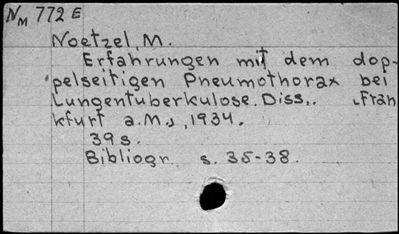 NM 772 E
Noetzel, M.
Erfahrungen mit dem dop-
pelseitigen Pneumothorax bei
Lungentuberkulose. Diss., Fran
kfurt a.M., 1934.
39 s.
Bibliogr. s. 35-38.